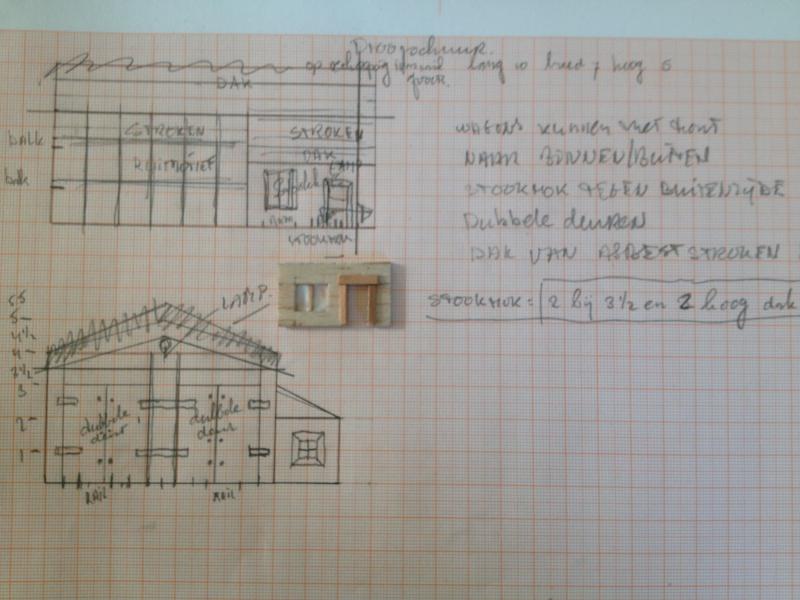 Droogschuur.
lang 10 breed 7 hoog 5
DAK
STROKEN
STROKEN
balk
RUITMOTIEF
DAK
LAMP
balk
dubbele
RAAM
STOOKHOK
WAGONS KUNNEN MET HOUT
NAAR BINNEN/BUITEN
STOOKHOK TEGEN BUITENZIJDE
Dubbele deuren
DAK VAN ASBEST STROKEN
STOOKHOK = 2 bij 3 1/2 en 2 hoog dak
LAMP.
5.5
5
4 1/2
4
3 1/2
3
2
1
dubbele
deur
dubbele
deur
RAIL
RAIL